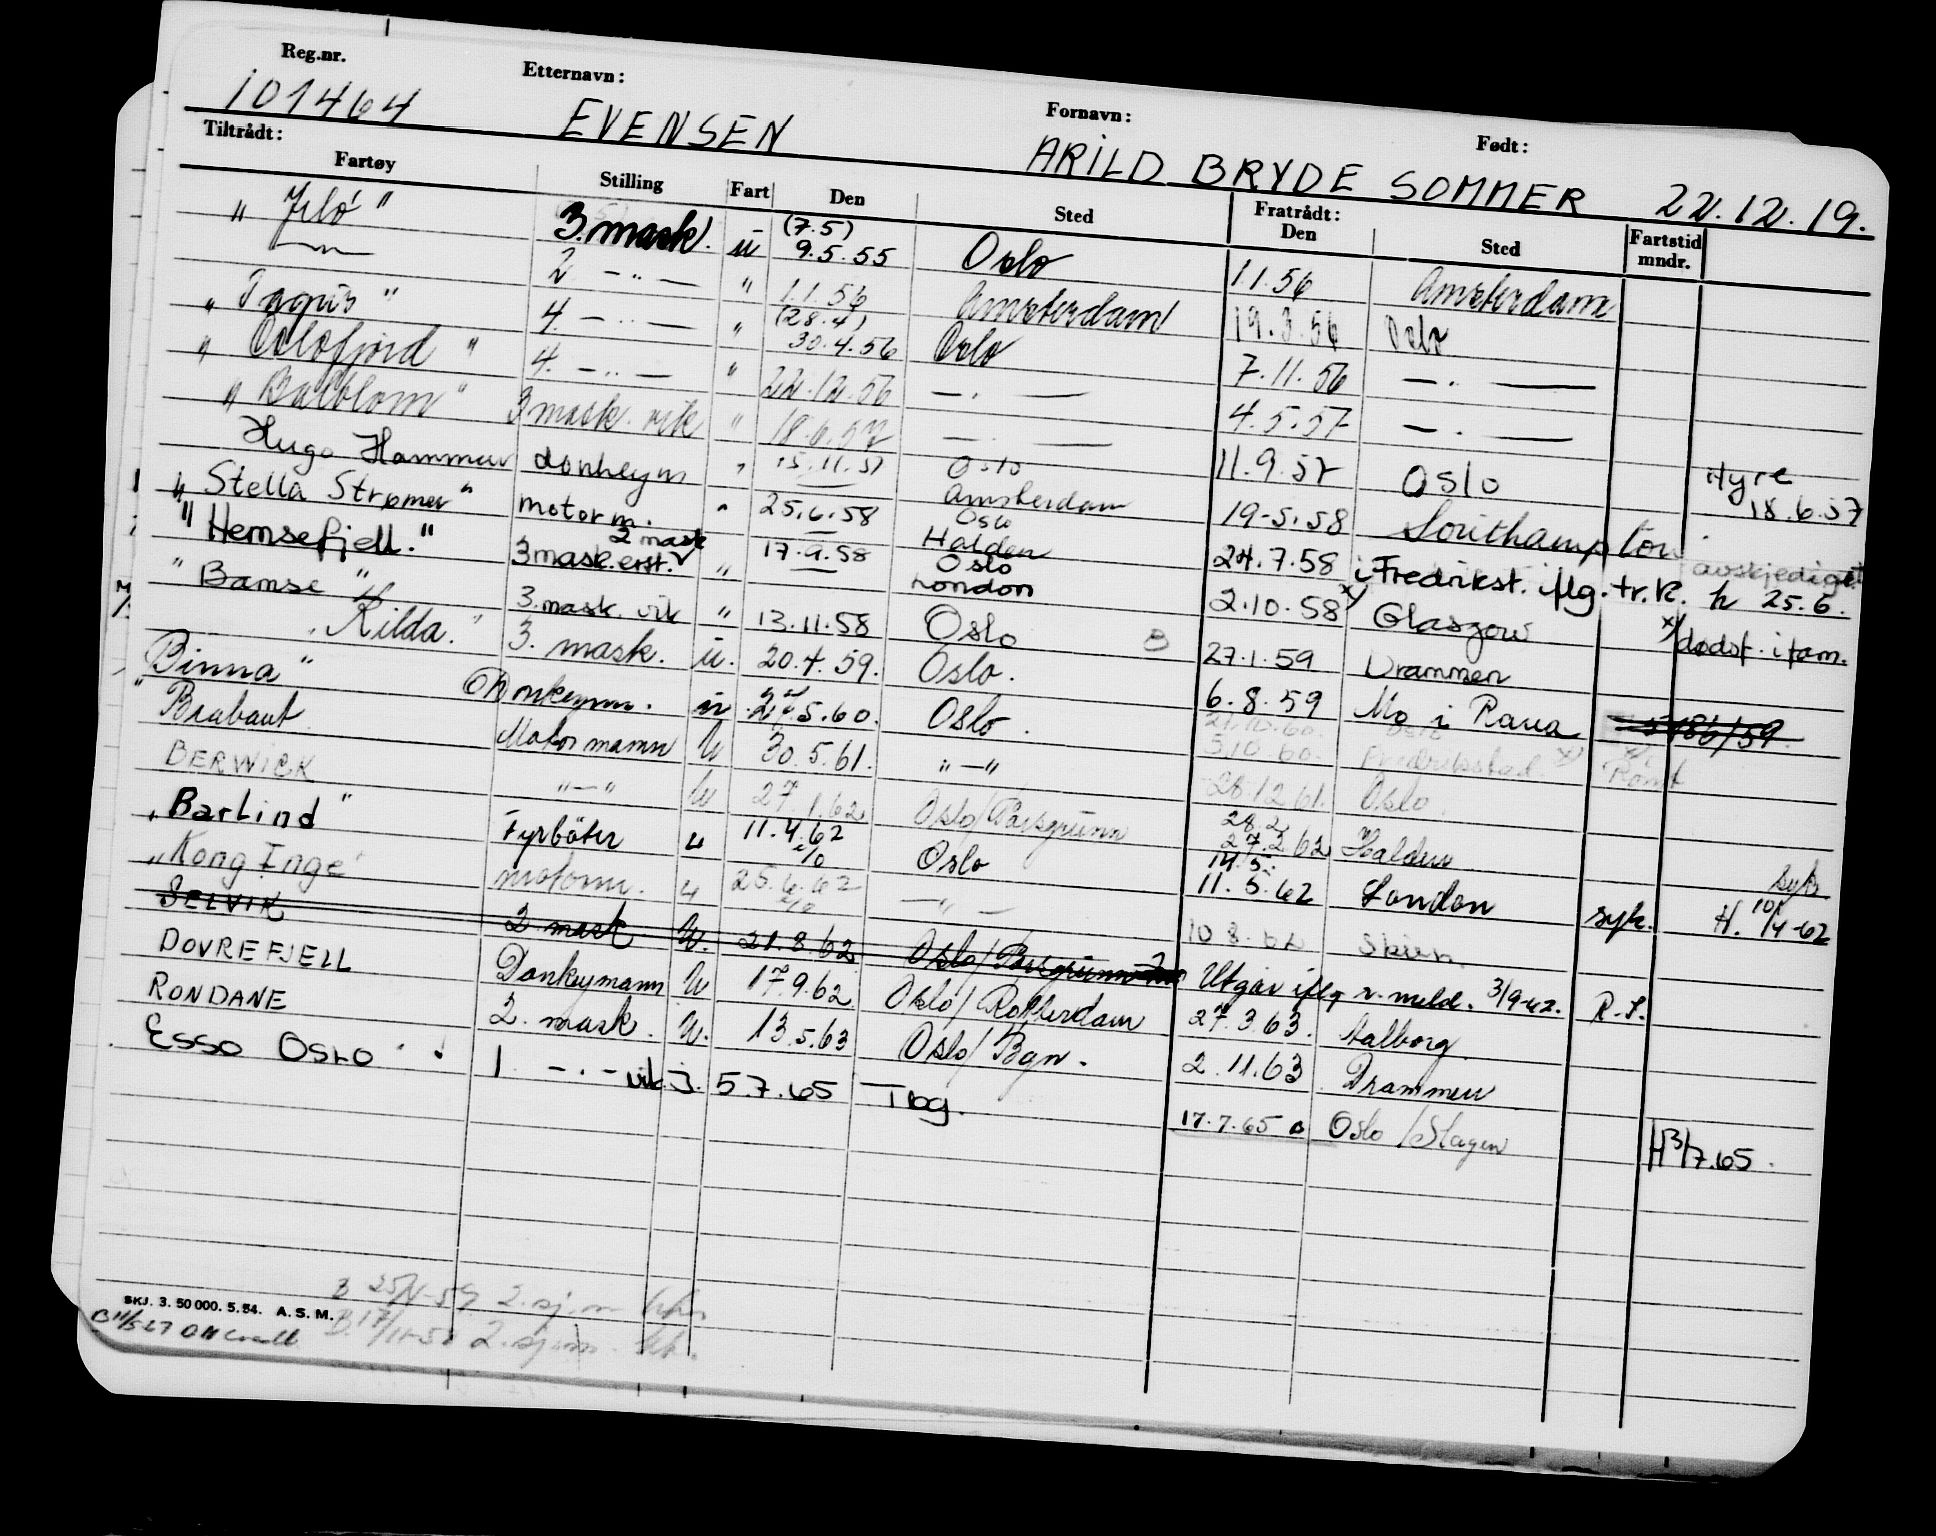 Reg.nr. Etternavn: Fornavn: Født:
101464 EVENSEN ARILD BRYDE SOMMER 22.12.19.
Tiltrådt: Fratrådt:
Fartøy Stilling Fart Den Sted Den Sted Fartstid mndr.
" " 3. mask. u (7.5) 9.5.55 Oslo 1.1.56 Amsterdam
—"— 2 —"— " 1.1.56 Amsterdam 19.3.56 Oslo
" " 4. —"— " (28.4) 30.4.56 Oslo 7.11.56 —"—
" Oslofjord " 4. —"— " 22.12.56 —"— 4.5.57 —"—
" Balblom " 3 mask. vik " 18.6.57 —"— 11.9.57 Oslo Hyre 18.6.57
Hugo Hammar donkeym " 15.11.57 Oslo Amsterdam 19-5.58 Southampton
" Stella Strømer " motorm. " 25.6.58 Oslo Halden 24.7.58 i Fredrikst. iflg. tr.k. h 25.6. avskjediget
" Hemsefjell." 2 mask 3 mask. erst. " 17.9.58 Oslo London 2.10.58 x) Glasgow x) dødsf. i fam.
" Bamse " 3. mask. vik " 13.11.58 Oslo B 27.1.59 Drammen
" Rilda." 3. mask. u. 20.4.59. Oslo. 6.8.59 Mo i Rana
Binna " Donkeym. u 5.60. Oslo. 5.10.60. Fredrikstad x)
" Brabant Motormann U 30.5.61. "—" 28.12.61. Oslo
BERWICK "—" U 27.1.62 Oslo/Porsgrunn 28.2 27.2.62 Halden
"Barlind" Fyrbøter " 11.4.62 Oslo 14.5. 11.5.62 London syk. H. 10/4-62
"Kong Inge" motorm. " 25.6.62 —"— 10.8.62 Skien
SELVIK 2 mask U. 21.8.62 Oslo/Porsgrunn Utgår iflg r. meld. 3/9-62. R.S.
DOVREFJELL Donkeymann U 17.9.62 Oslo/Rotterdam 27.3.63. Aalborg.
RONDANE 2. mask. U. 13.5.63 Oslo/Bgn. 2.11.63 Drammen
ESSO OSLO 1. —"— vik. J. 5.7.65 Tbg. 17.7.65 Oslo/Slagen H 3/7.65.
SKJ. 3. 50 000. 5. 54. A. S. M.